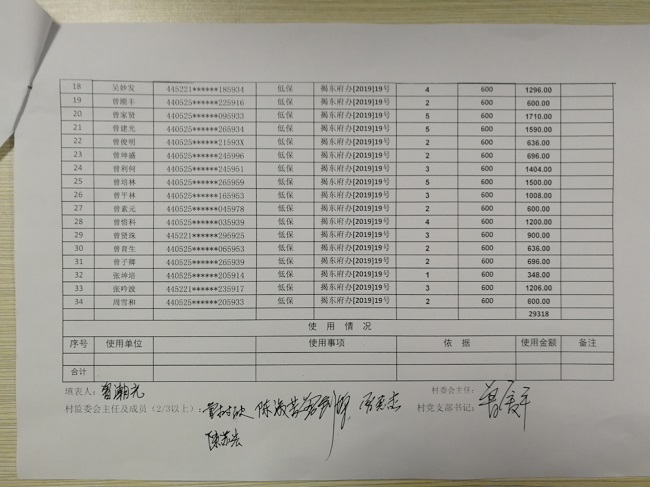 18 吴妙发 445221******185934 低保 揭东府办[2019]19号 4 600 1296.00
19 曾顺丰 440525******225916 低保 揭东府办[2019]19号 2 600 600.00
20 曾家贤 440525******095933 低保 揭东府办[2019]19号 5 600 1710.00
21 曾建光 440525******265934 低保 揭东府办[2019]19号 5 600 1590.00
22 曾俊明 440525******21593X 低保 揭东府办[2019]19号 2 600 636.00
23 曾坤盛 440525******245996 低保 揭东府办[2019]19号 2 600 696.00
24 曾利何 440525******245951 低保 揭东府办[2019]19号 3 600 1404.00
25 曾培林 440525******265959 低保 揭东府办[2019]19号 5 600 1500.00
26 曾平林 440525******165953 低保 揭东府办[2019]19号 3 600 1008.00
27 曾素元 440525******045978 低保 揭东府办[2019]19号 2 600 600.00
28 曾惜科 440525******035939 低保 揭东府办[2019]19号 4 600 1200.00
29 曾贤珠 445221******295925 低保 揭东府办[2019]19号 3 600 900.00
30 曾育生 440525******065953 低保 揭东府办[2019]19号 2 600 636.00
31 曾子卿 440525******265939 低保 揭东府办[2019]19号 2 600 696.00
32 张坤培 440525******205914 低保 揭东府办[2019]19号 1 600 348.00
33 张吟波 445221******235917 低保 揭东府办[2019]19号 3 600 1206.00
34 周雪和 440525******205933 低保 揭东府办[2019]19号 2 600 600.00
29318
使 用 情 况
序号 使用单位 使用事项 依 据 使用金额 备注
合计
填表人: 曾潮光 村委会主任:
村监委会主任及成员(2/3以上): 村党支部书记: